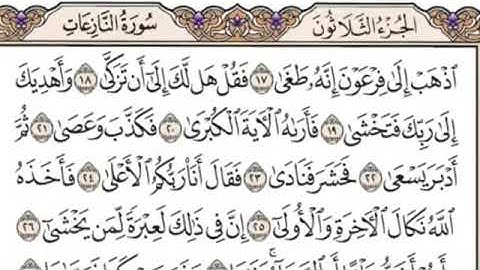 الجُزْءُ الثَّلَاثُونَ سُورَةُ النَّازِعَاتِ
ٱذْهَبْ إِلَىٰ فِرْعَوْنَ إِنَّهُۥ طَغَىٰ ١٧ فَقُلْ هَل لَّكَ إِلَىٰٓ أَن تَزَكَّىٰ ١٨ وَأَهْدِيَكَ
إِلَىٰ رَبِّكَ فَتَخْشَىٰ ١٩ فَأَرَىٰهُ ٱلْأٓيَةَ ٱلْكُبْرَىٰ ٢٠ فَكَذَّبَ وَعَصَىٰ ٢١ ثُمَّ
أَدْبَرَ يَسْعَىٰ ٢٢ فَحَشَرَ فَنَادَىٰ ٢٣ فَقَالَ أَنَا۠ رَبُّكُمُ ٱلْأَعْلَىٰ ٢٤ فَأَخَذَهُ
ٱللَّهُ نَكَالَ ٱلْأٓخِرَةِ وَٱلْأُولَىٰٓ ٢٥ إِنَّ فِي ذَٰلِكَ لَعِبْرَةً لِّمَن يَخْشَىٰٓ ٢٦